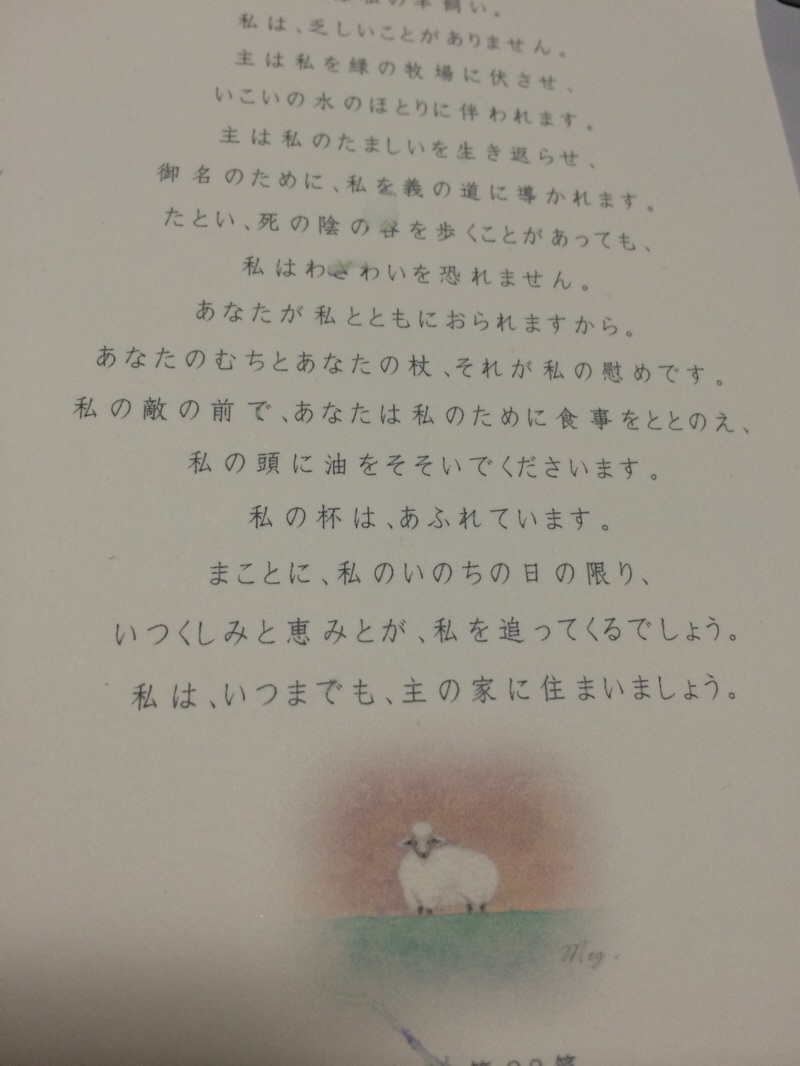 私の羊飼い。
私は、乏しいことがありません。
主は私を緑の牧場に伏させ、
いこいの水のほとりに伴われます。
主は私のたましいを生き返らせ、
御名のために、私を義の道に導かれます。
たとい、死の陰の谷を歩くことがあっても、
私はわざわいを恐れません。
あなたが私とともにおられますから。
あなたのむちとあなたの杖、それが私の慰めです。
私の敵の前で、あなたは私のために食事をととのえ、
私の頭に油をそそいでくださいます。
私の杯は、あふれています。
まことに、私のいのちの日の限り、
いつくしみと恵みとが、私を追ってくるでしょう。
私は、いつまでも、主の家に住まいましょう。
Meg.